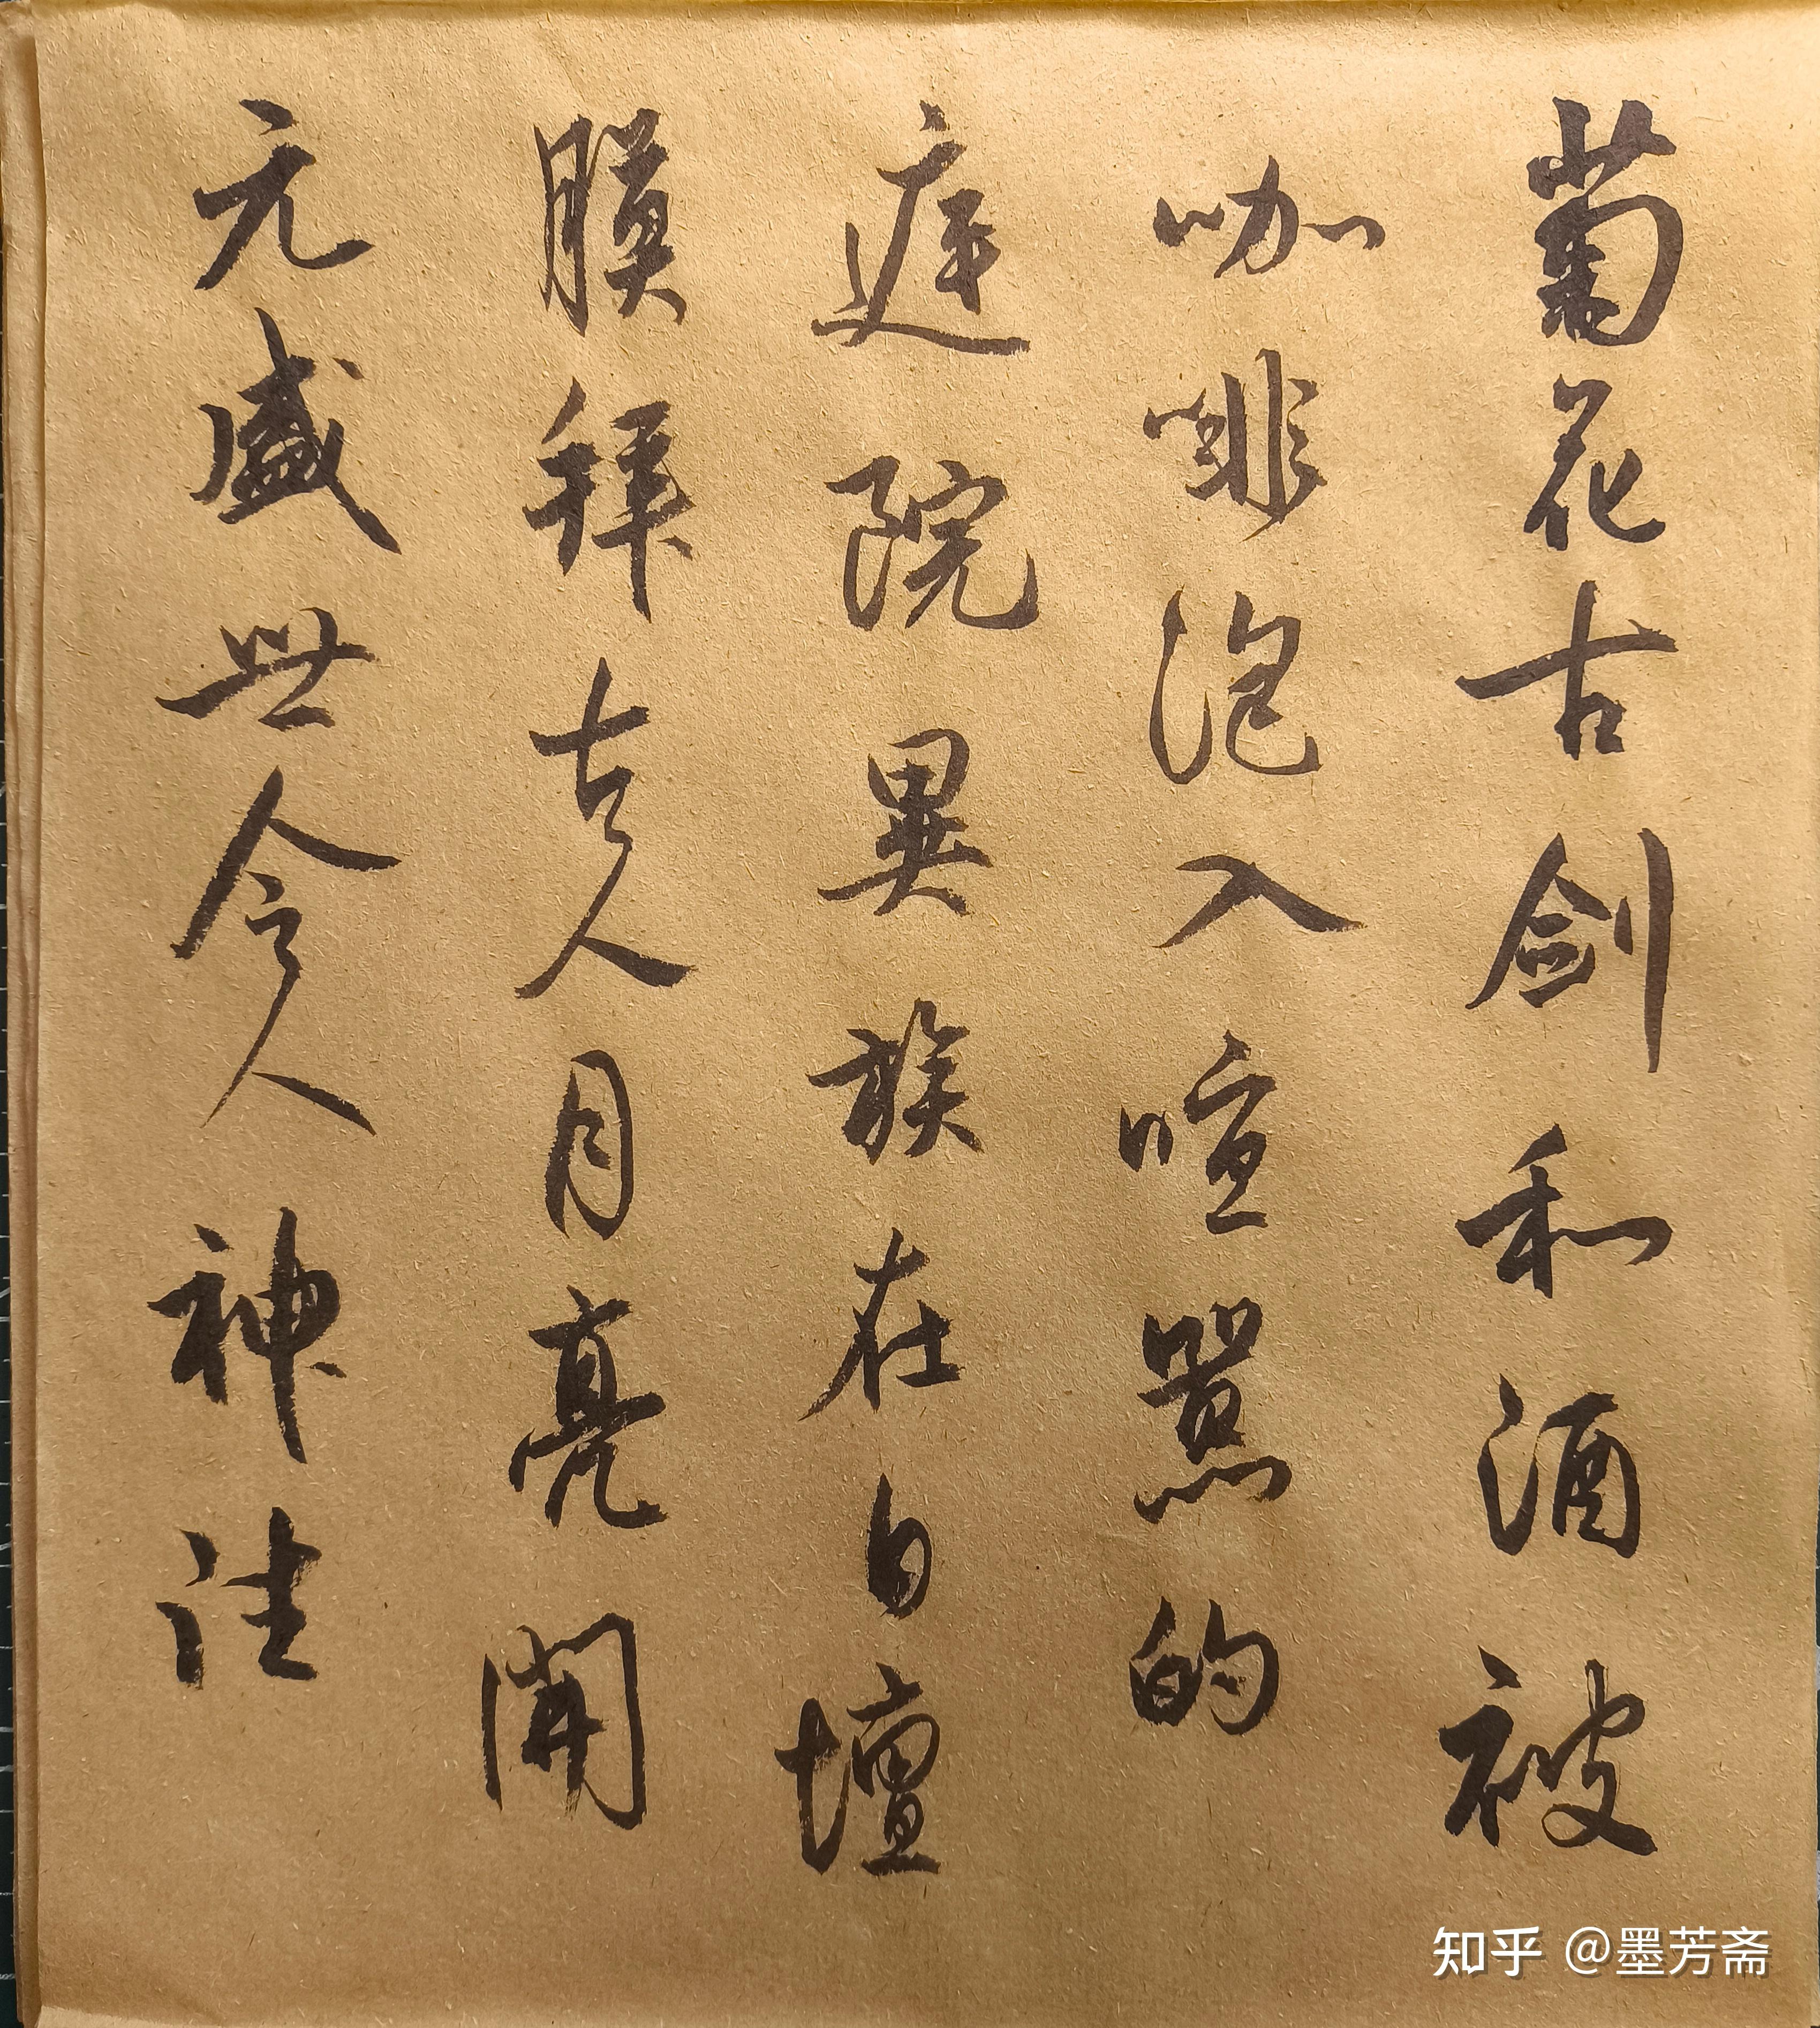 菊花古剑和酒被
咖啡泡入喧嚣的
庭院異族在日壇
膜拜古人月亮開
元盛世令人神往
知乎 @墨芳斋